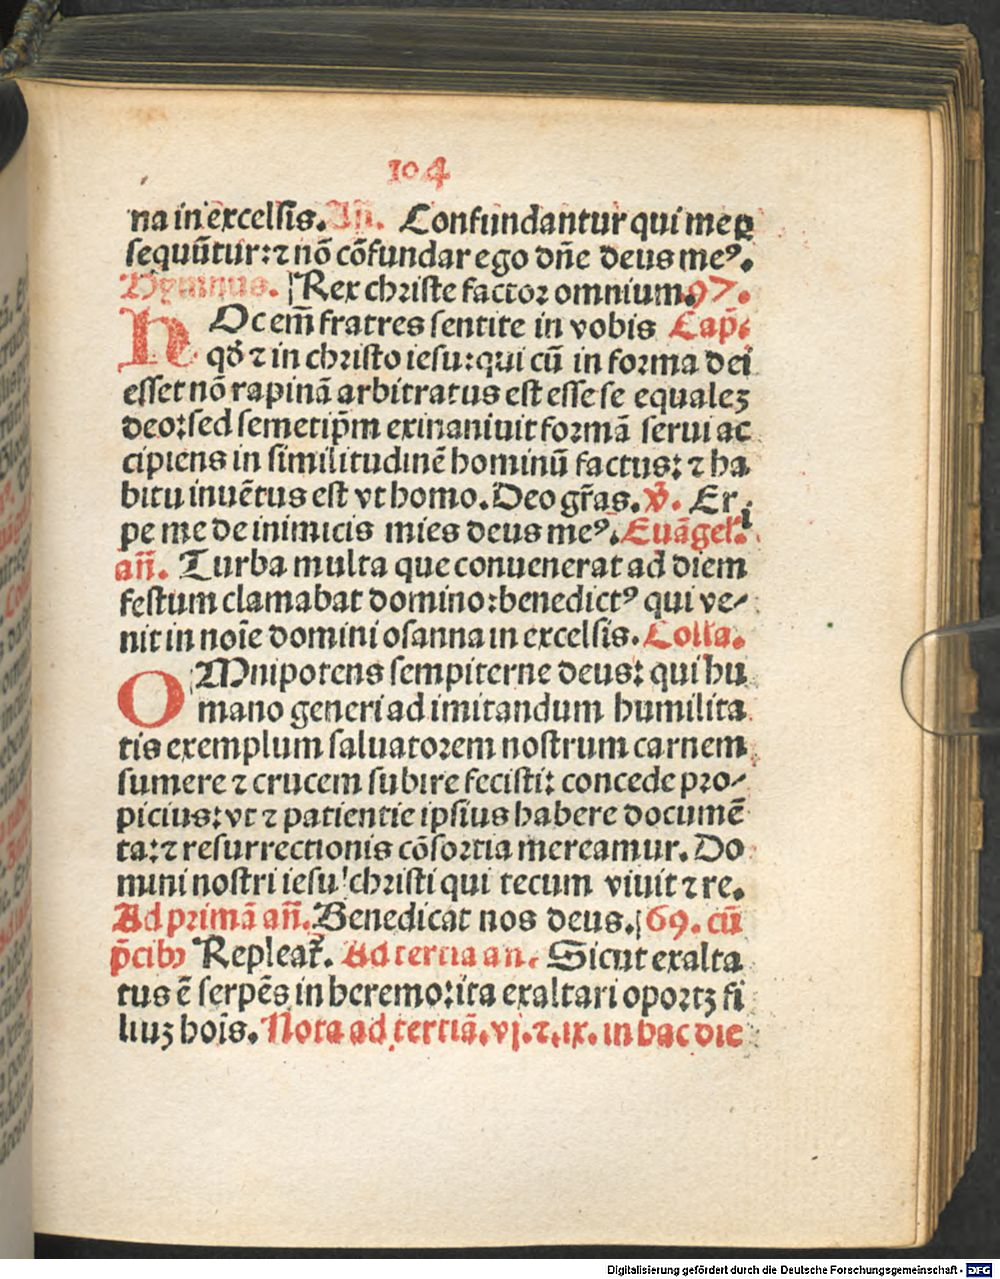 104
na in excelsis. Añ. Confundantur qui me ꝑ
sequūtur: ⁊ nō cōfundar ego dñe deus meꝰ.
Hymnus. Rex christe factor omnium. 97.
HOc em̄ fratres sentite in vobis Cap̄.
qd̄ ⁊ in christo iesu: qui cū in forma dei
esset nō rapinā arbitratus est esse se equaleȝ
deo: sed semetip̄m exinaniuit formā serui ac
cipiens in similitudinē hominū factus: ⁊ ha
bitu inuētus est vt homo. Deo gr̄as. ℣. Er i
pe me de inimicis mies deus meꝰ. Euāgel.
añ. Turba multa que conuenerat ad diem
festum clamabat domino: benedictꝰ qui ve⸗
nit in noīe domini osanna in excelsis. Colla.
OMnipotens sempiterne deus: qui hu
mano generi ad imitandum humilita
tis exemplum saluatorem nostrum carnem
sumere ⁊ crucem subire fecisti: concede pro⸗
picius: vt ⁊ patientie ipsius habere documē
ta: ⁊ resurrectionis cōsortia mereamur. Do
mini nostri iesu christi qui tecum viuit ⁊ re.
Ad primā añ. Benedicat nos deus. 69. cū
p̄cibꝫ Repleat᷒. Ad tertia an. Sicut exalta
tus ē serpēs in heremo: ita exaltari oportȝ fi
liuȝ hoīs. Nota ad tertiā. vj. ⁊. ix. in hac die
Digitalisierung gefördert durch die Deutsche Forschungsgemeinschaft - DFG